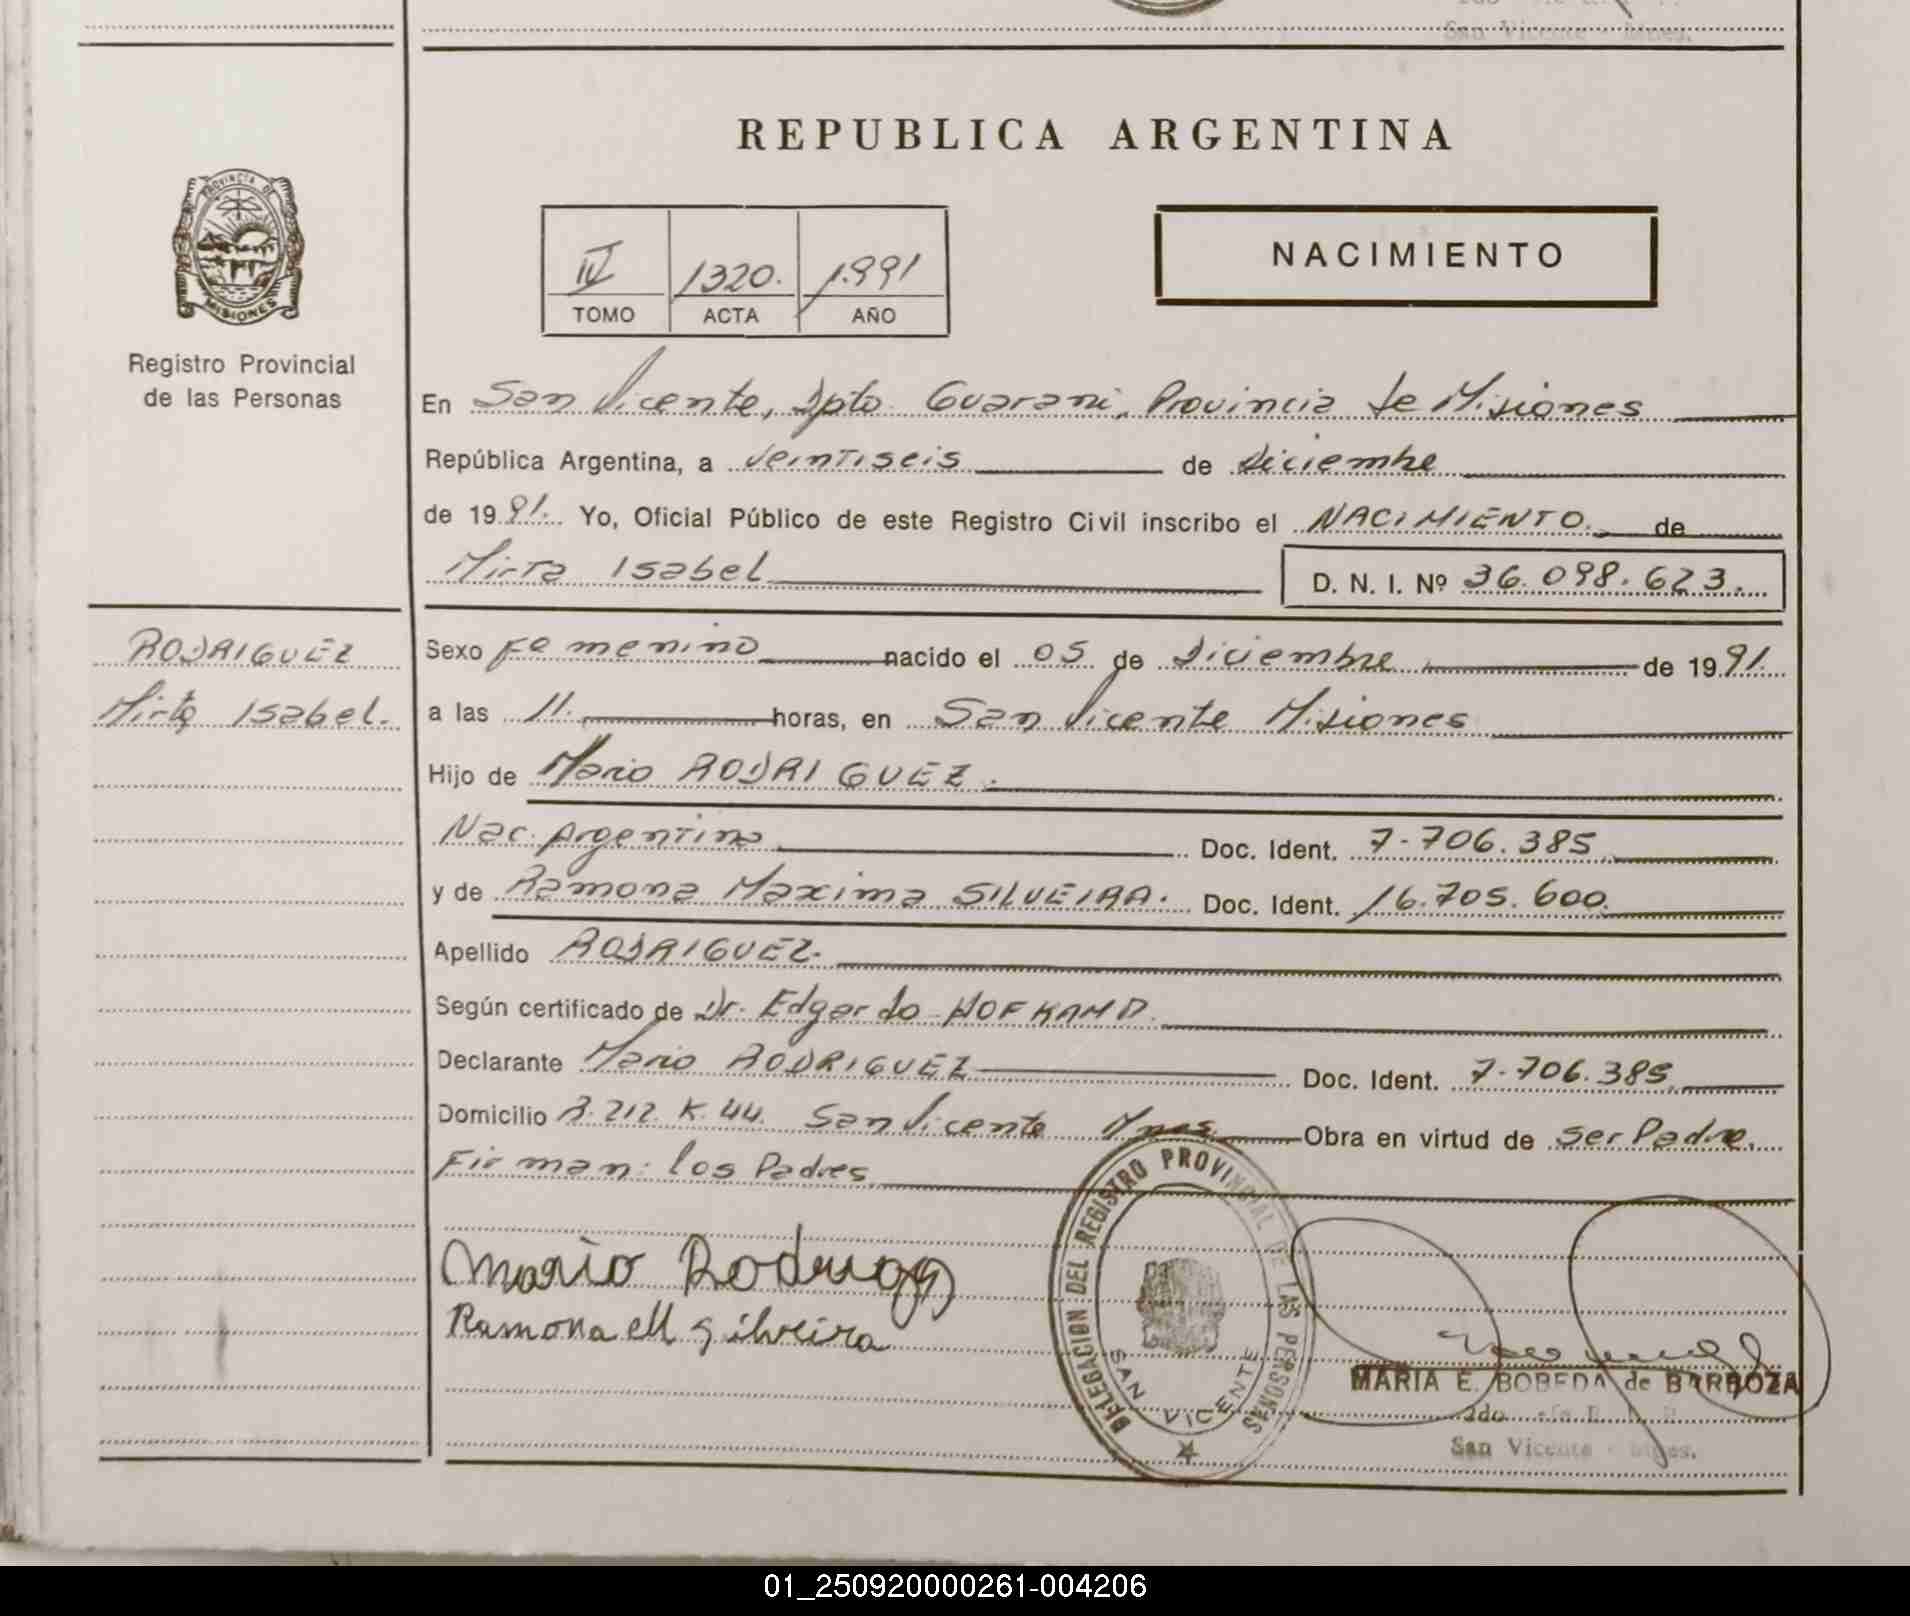 San Vicente - Mnes.
REPUBLICA ARGENTINA
PROVINCIA DE
MISIONES
Registro Provincial
de las Personas
IV 1320. 1.991
TOMO ACTA AÑO
NACIMIENTO
En San Vicente, Dpto. Guarani, Provincia de Misiones
República Argentina, a veintiseis de Diciembre
de 1991. Yo, Oficial Público de este Registro Civil inscribo el NACIMIENTO. de
Mirta Isabel D. N. I. Nº 36.098.623.
RODRIGUEZ
Mirta Isabel.
Sexo Femenino nacido el 05 de Diciembre de 1991.
a las 11. horas, en San Vicente Misiones
Hijo de Mario RODRIGUEZ.
Nac. Argentina Doc. Ident. 7.706.385
y de Ramona Maxima SILVEIRA. Doc. Ident. 16.705.600.
Apellido RODRIGUEZ.
Según certificado de Dr. Edgardo HOFKAMP.
Declarante Mario RODRIGUEZ Doc. Ident. 7.706.385
Domicilio R.212. K.44. San Vicente Mnes. Obra en virtud de ser Padre.
Firman: los Padres
Mario Rodrigz
Ramona M Silveira
DELEGACION DEL REGISTRO PROVINCIAL DE LAS PERSONAS
SAN VICENTE
MARIA E. BOBEDA de BARBOZA
2do.
San Vicente - Mnes.
01_250920000261-004206